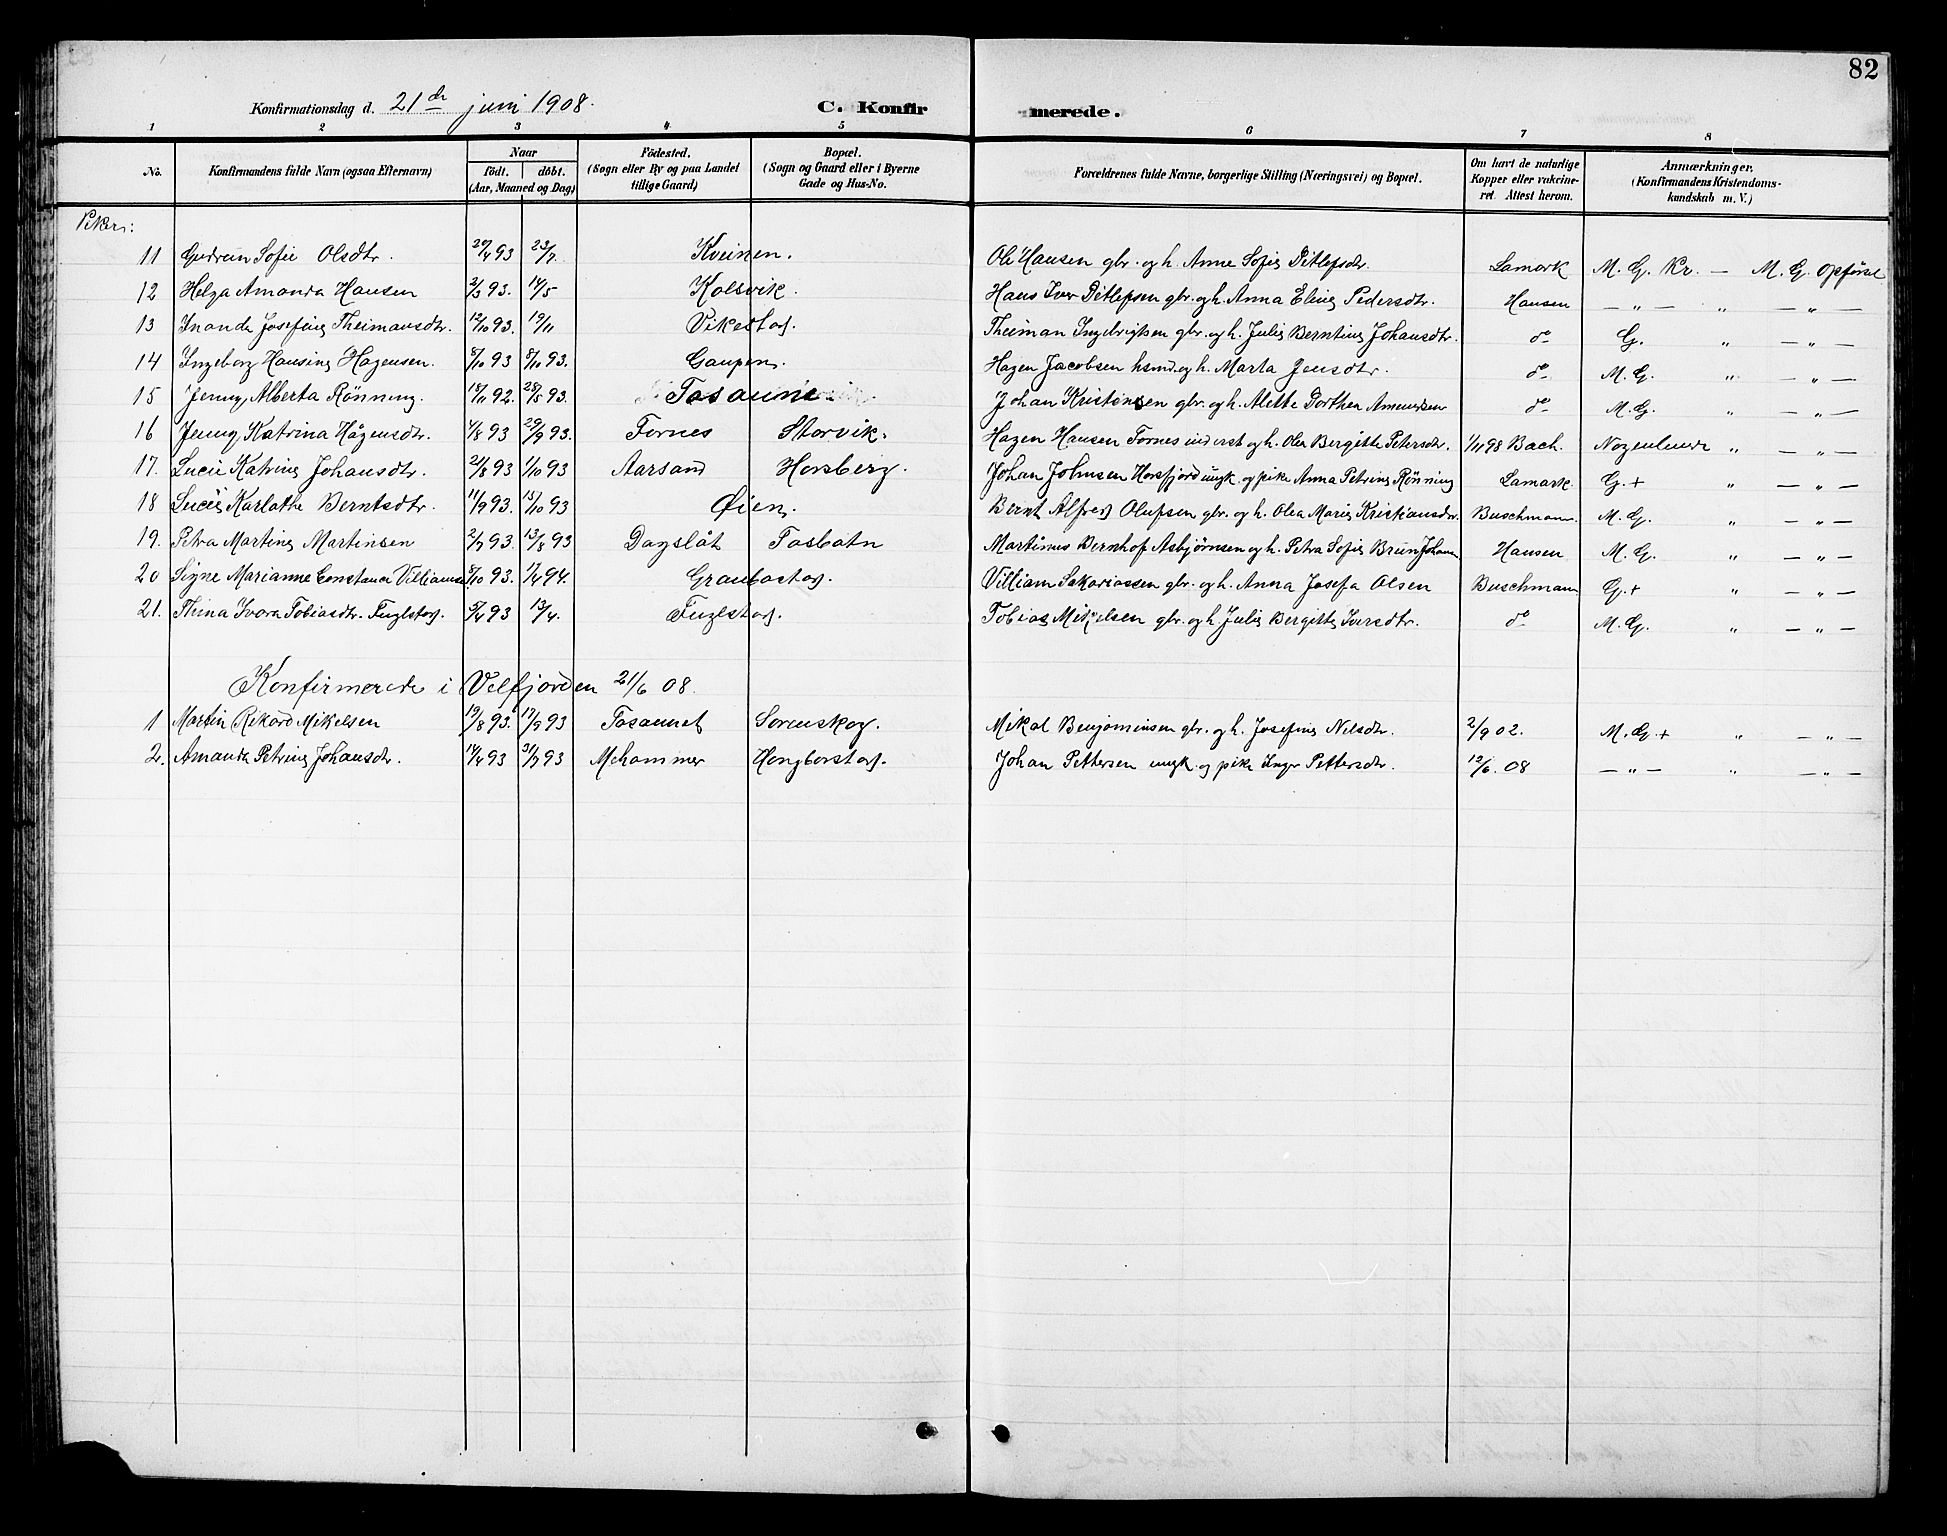 82
Konfirmationsdag d. 21de juni 1908. C. Konfirmerede.
1 2 3 4 5 6 7 8
No. Konfirmandens fulde Navn (ogsaa Efternavn) Naar födt. döbt. (Aar, Maaned og Dag) Födested. (Sogn eller By og paa Landet tillige Gaard) Bopæl. (Sogn og Gaard eller i Byerne Gade og Hus-No. Forældrenes fulde Navne, borgerlige Stilling (Næringsvei) og Bopæl. Om havt de naturlige Kopper eller vakcineret. Attest herom. Anmærkninger. (Konfirmandens Kristendomskundskab m. V.)
Piker:
11 Gudrun Sofie Olsdtr. 20/4 93 23/7. Kveinen. Ole Hansen gbr. og h. Anne Sofie Ditlefsdtr. Lamark M. G. Kr. — M. G. Opførsel
12 Helga Amanda Hansen 2/3 93. 14/5 Kolsvik. Hans Iver Ditlefsen gbr. og h. Anna Eline Pedersdtr. Hansen — „ — „ — „ —
13 Inanda Josefine Theimansdtr. 12/10 93. 19/11 Vikestad. Theiman Ingebrigtsen gbr. og h. Julie Berntine Johansdtr. do G. „ — „ —
14 Ingeborg Hansine Hagensen. 8/10 93 8/10 93. Gaupen. Hagen Jacobsen hsmd. og h. Marta Jensdtr. do M. G. „ — „ —
15 Jenny Alberta Rönning. 18/11 92. 28/5 93. Tosaune. Johan Kristensen gbr. og h. Alette Dorthea Amundsen do M. G. „ — „ —
16 Jenny Katrina Hågensdtr. 1/8 93 29/9 93. Fornes Storvik. Hagen Hansen Fornes inderst og h. Olea Bergitte Petersdtr. 1/11 98 Bach. Nogenlunde „ — „ —
17. Lucie Katrine Johansdtr. 21/8 93 1/10 93 Aarsand Horsberg. Johan Johnsen Horsfjord ungk. og pike Anna Petrine Rönning Lamark G.+ „ — „ —
18 Lucie Karlothe Berntsdtr. 11/9 93. 15/10 93 Øien. Bernt Alfred Olufsen gbr. og h. Olea Marie Kristiansdtr. Buschmann. M. G. „ — „ —
19. Petra Martine Martinsen 2/7 93. 13/8 93 Dagslåt Tosbotn Martinus Bernhof Asbjørnsen og h. Petra Sofie Brun Johans Hansen M. G. „ — „ —
20 Signe Marianne Constance Villiamsd 8/10 93. 1/4 94. Granbostad. Villiam Sakariassen gbr. og h. Anna Josefa Olsen Buschmann G.+ „ — „ —
21. Thina Ivora Tobiasdtr. Fuglstad. 5/4 93 13/4. Fuglstad. Tobias Mikelsen gbr. og h. Julie Bergitte Ivarsdtr. do M. G. „ — „ —
Konfirmerede i Velfjorden 21/6 08.
1 Martin Rikard Mikelsen 19/8 93. 17/9 93 Tosaunet Sørenskog. Mikal Benjaminsen gbr. og h. Josefine Nilsdtr. 2/9 02. M. G.+ „ — „ —
2. Amanda Petrine Johansdtr. 14/4 93 31/7 93 Mohammer Hongborstad. Johan Pettersen ungk. og pike Inger Pettersdtr. 12/6. 08 — „ — „ — „ —